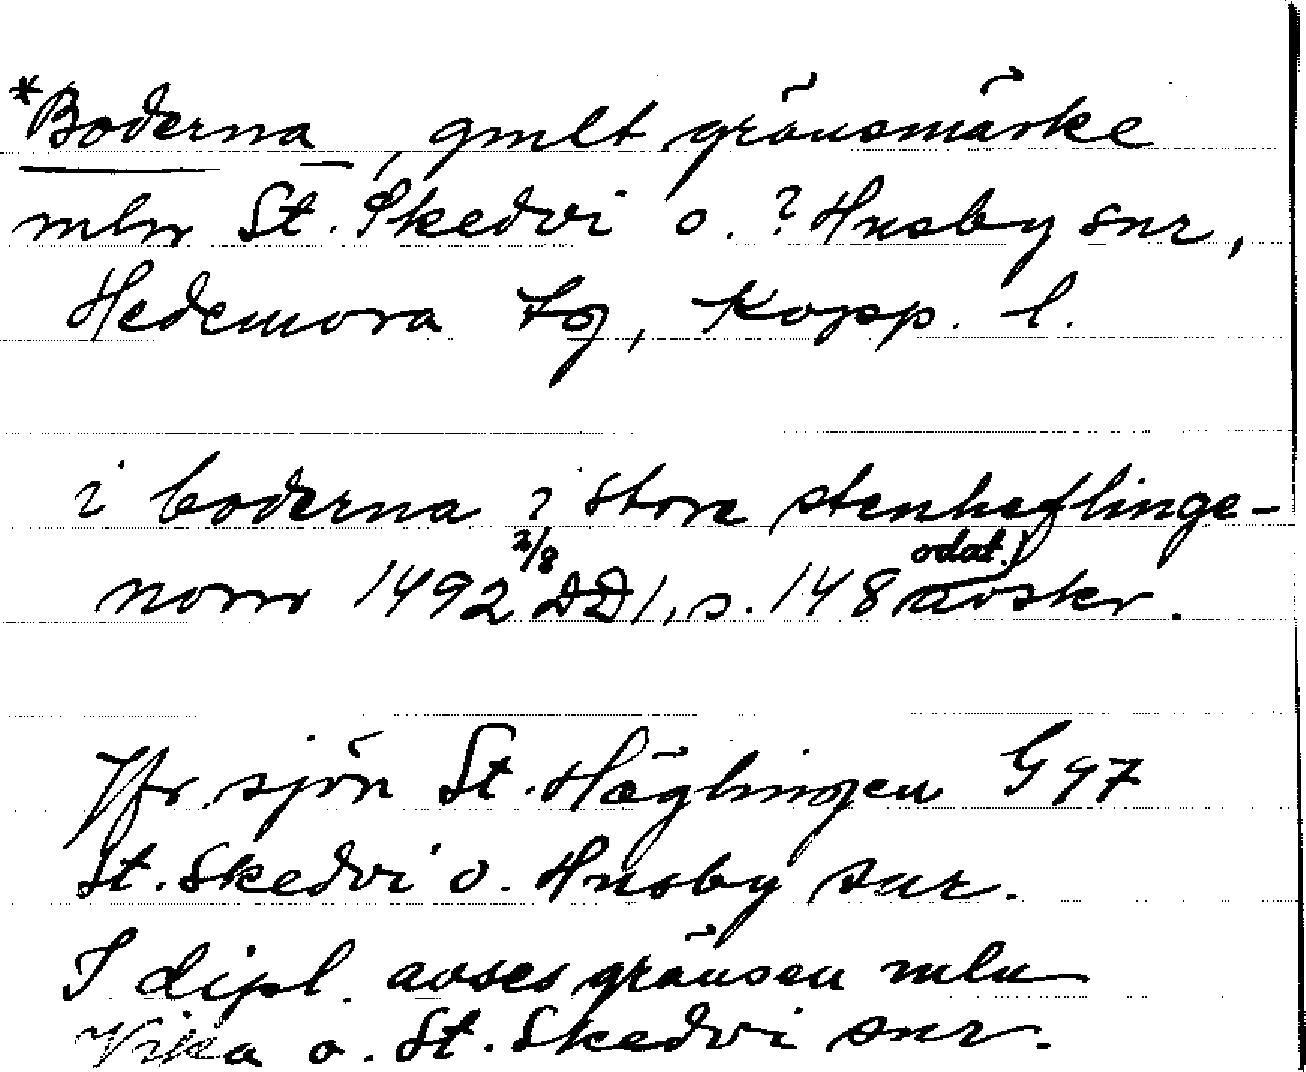 *Boderna, gmlt gränsmärke
mln St. Skedvi o. ? Husby snr,
Hedemora tg, Kopp. l.
i boderna i store stenheflinge-
norr 1492 2/8 DD1, s. 148 odat. avskr.
Jfr sjön St. Häglingen G 97
St. Skedvi o. Husby snr.
I dipl. avses gränsen mln
Vika o. St. Skedvi snr.